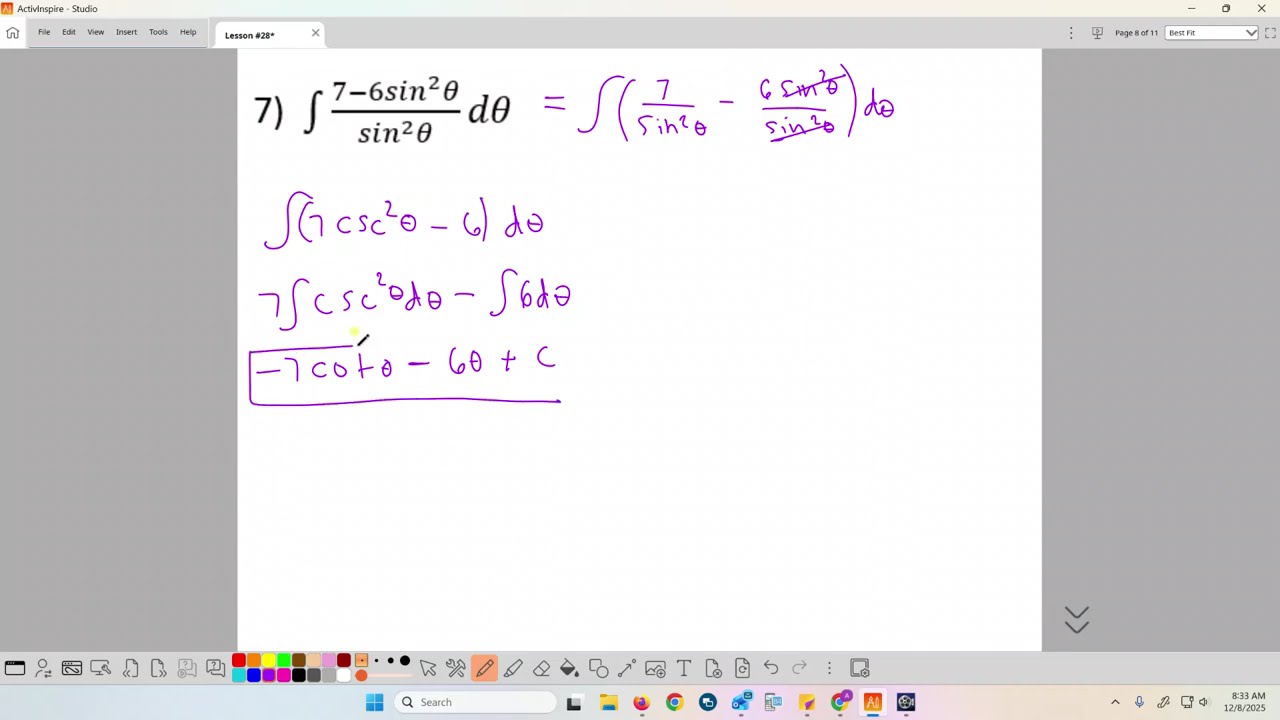 ActivInspire - Studio
File Edit View Insert Tools Help
Lesson #28*
Page 8 of 11
Best Fit
7) ∫ (7−6sin²θ)/(sin²θ) dθ = ∫(7/(sin²θ) − (6 sin²θ)/(sin²θ)) dθ
∫(7 csc²θ − 6) dθ
7∫csc²θ dθ − ∫6dθ
−7cotθ − 6θ + C
Search
8:33 AM
12/8/2025